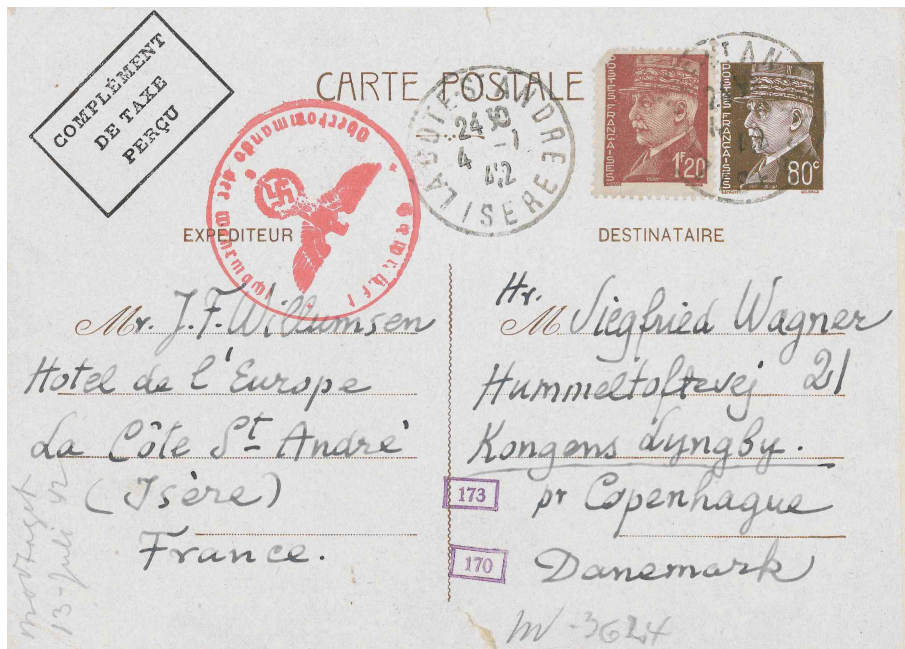 COMPLÉMENT
DE TAXE
PERÇU
CARTE POSTALE
Oberkommando der Wehrmacht
Geprüft
LA COTE ST ANDRE
24
4 -7
42
ISERE
POSTES FRANÇAISES
1F20
POSTES FRANÇAISES
80c
EXPÉDITEUR
Mr. J. F. Willumsen
Hotel de l'Europe
La Côte St André
(Isère)
France.
DESTINATAIRE
Hr.
M. Siegfried Wagner
Hummeltoftevej 21
Kongens Lyngby.
pr Copenhague
Danemark
173
170
modtaget
13-juli 42